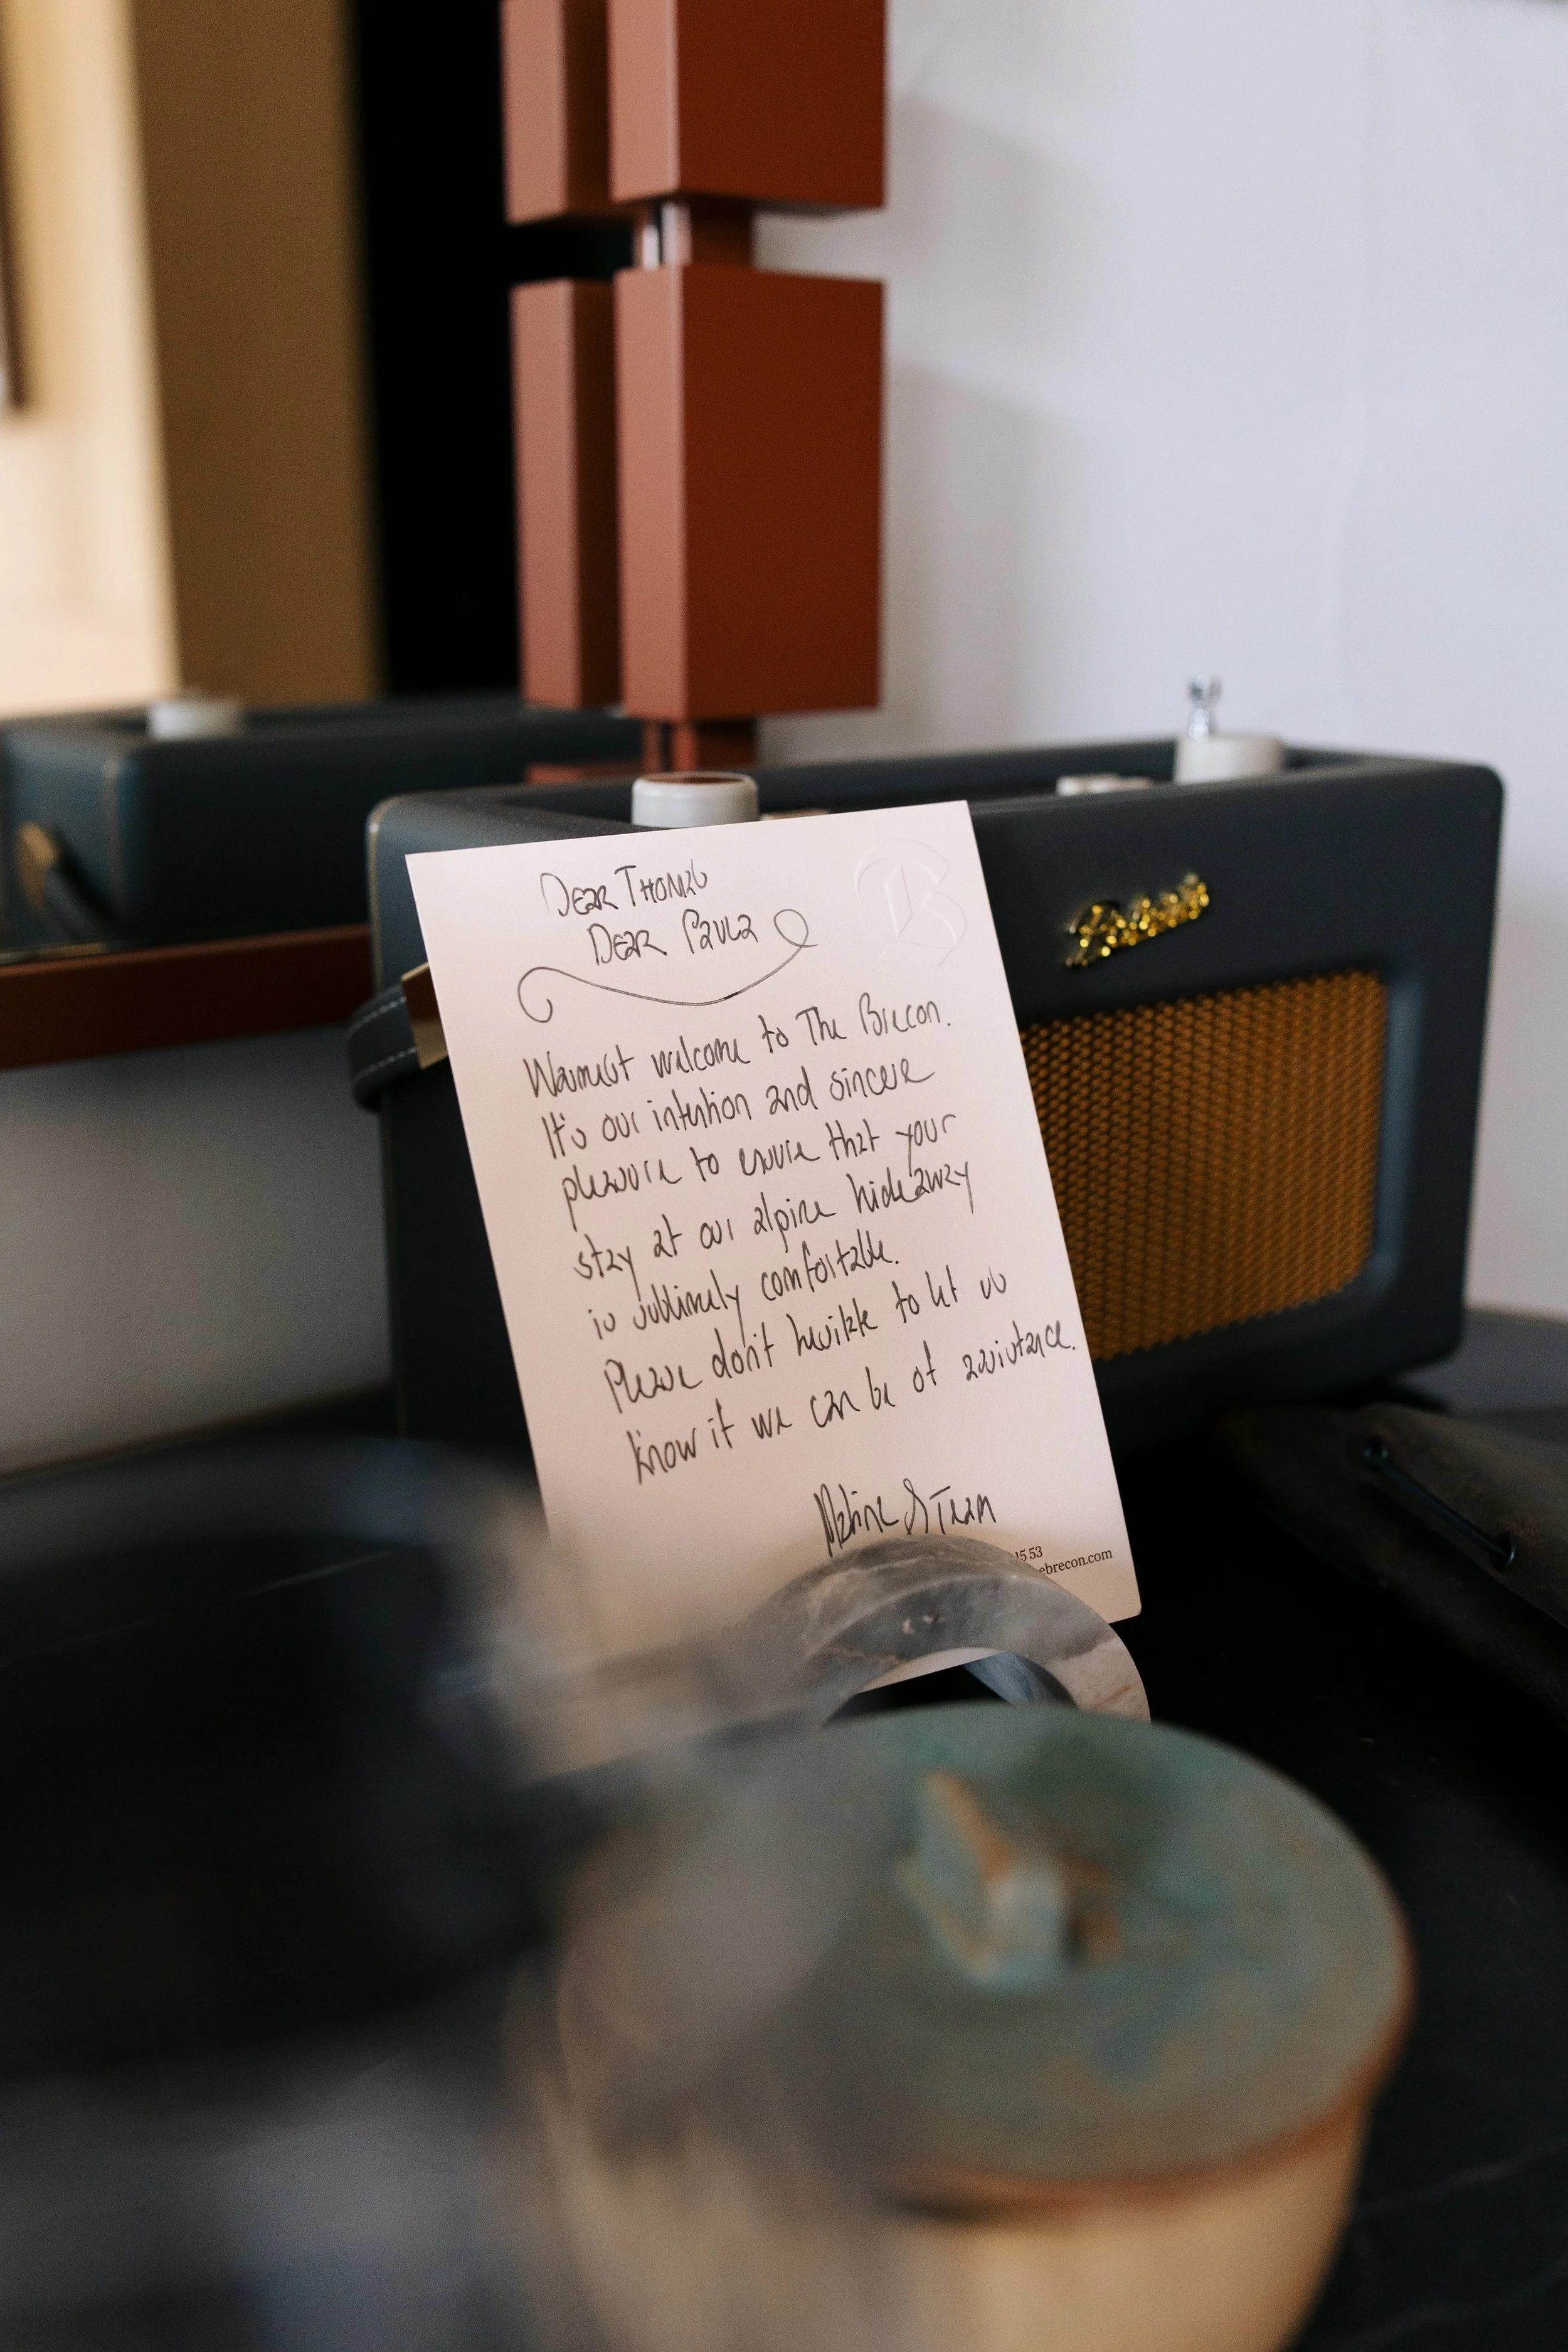 DEAR THOMAS
DEAR PAULA
B
Warmest welcome to The Brecon.
It's our intention and sincere
pleasure to ensure that your
stay at our alpine hideaway
is sublimely comfortable.
Please don't hesitate to let us
know if we can be of assistance.
& TEAM
15 53
ebrecon.com
Roberts